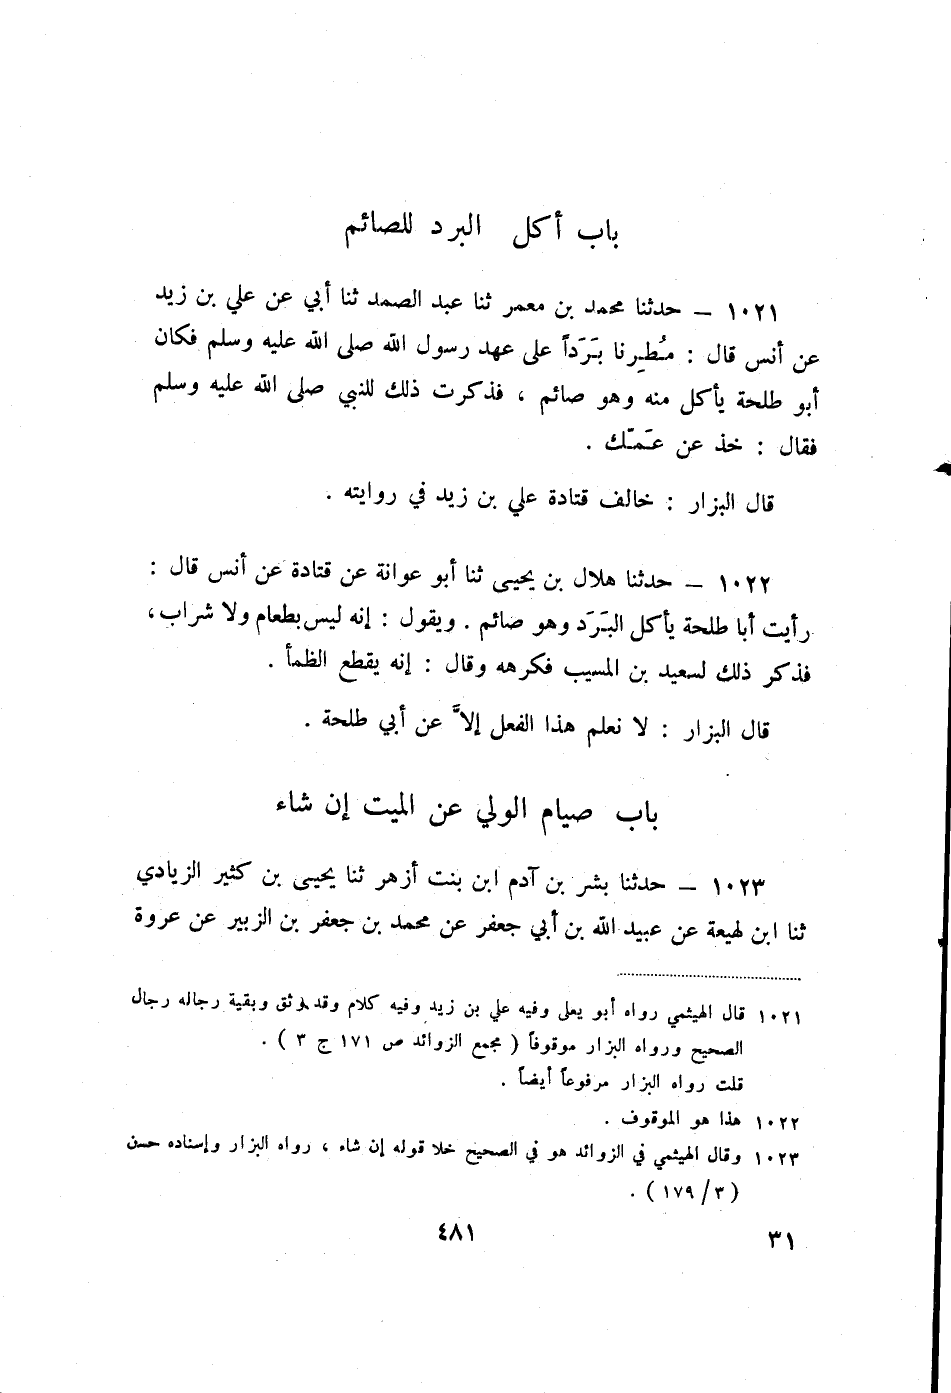 باب أكل البرد للصائم
١٠٢١ – حدثنا محمد بن معمر ثنا عبد الصمد ثنا أبي عن علي بن زيد
عن أنس قال : مُطِرنا بَرَداً على عهد رسول الله صلى الله عليه وسلم فكان
أبو طلحة يأكل منه وهو صائم ، فذكرت ذلك للنبي صلى الله عليه وسلم
فقال : خذ عن عَمّك .
قال البزار : خالف قتادة علي بن زيد في روايته .
١٠٢٢ – حدثنا هلال بن يحيى ثنا أبو عوانة عن قتادة عن أنس قال :
رأيت أبا طلحة يأكل البَرَد وهو صائم . ويقول : إنه ليس بطعام ولا شراب ،
فذكر ذلك لسعيد بن المسيب فكرهه وقال : إنه يقطع الظمأ .
قال البزار : لا نعلم هذا الفعل إلاَّ عن أبي طلحة .
باب صيام الولي عن الميت إن شاء
١٠٢٣ – حدثنا بشر بن آدم ابن بنت أزهر ثنا يحيى بن كثير الزيادي
ثنا ابن لهيعة عن عبيد الله بن أبي جعفر عن محمد بن جعفر بن الزبير عن عروة
١٠٢١ قال الهيثمي رواه أبو يعلى وفيه علي بن زيد وفيه كلام وقد وثق وبقية رجاله رجال
الصحيح ورواه البزار موقوفاً ( مجمع الزوائد ص ١٧١ ج ٣ ) .
قلت رواه البزار مرفوعاً أيضاً .
١٠٢٢ هذا هو الموقوف .
١٠٢٣ وقال الهيثمي في الزوائد هو في الصحيح خلا قوله إن شاء ، رواه البزار وإسناده حسن
( ٣/ ١٧٩ ) .
٣١ ٤٨١